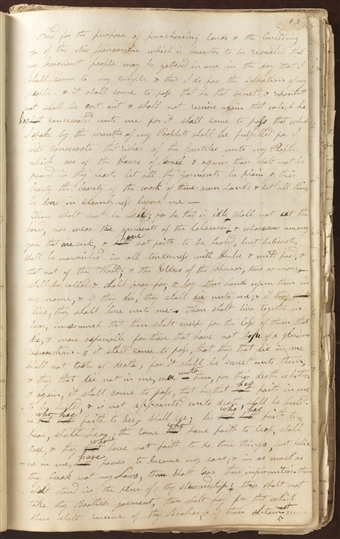 And for the purpose of purchasing lands & the building
up of the New Jerusalem which is hereafter to be revealed that
my covenant people may be gathered in one in the day that I
shall come to my temple & this I do for the salvation of my
people & it shall come to pass that he that sinneth & repenteth
not shall be cast out & shall not receive again that which he
has consecrated unto me for it shall come to pass that which
I spake by the mouths of my Prophets shall be fulfilled for I
will consecrate the riches of the gentiles unto my People
which are of the House of Israel & again thou shalt not be
proud in thy heart let all thy garments be plain & their
beauty the beauty of the work of thine own hands & let all things
be done in cleanliness before me
Thou shalt not be idle; for he that is idle shall not eat the
bread, nor wear the garments of the labourer; & whosoever among
you that are sick, & have not faith to be healed, but believeth,
shall be nourished in all tenderness with Herbs & mild food, &
that not of the World; & the Elders of the church, two or more
shall be called, & shall pray for, & lay their hands upon them in
my name, & if they die, they shall die unto me; & if they
live, they shall live unto me. Thou shalt live together in
love, insomuch that thou shalt weep for the loss of them that
die, & more especially for those that have not hope of a glorious
resurrection. & it shall come to pass, that them that die in me
shall not taste of death, for it shall be sweet unto them;
& they that die not in me, wo unto them, for their death is bitter
& again, it shall come to pass, that he that has faith in me
& is not appointed unto death, shall be healed
who has faith to see, shall see; he who has faith to
hear, shall hear; the lame who have faith to leap, shall
leap, & they who have not faith to do these things, but believe
in me, have power to become my sons; & in as much as
they break not my Laws, thou shalt bear their infirmities, thou
shalt stand in the place of thy stewardship; thou shalt not
take thy Brothers garment, thou shalt pay for that which
thou shalt receive of thy Brother, & if thou obtainest